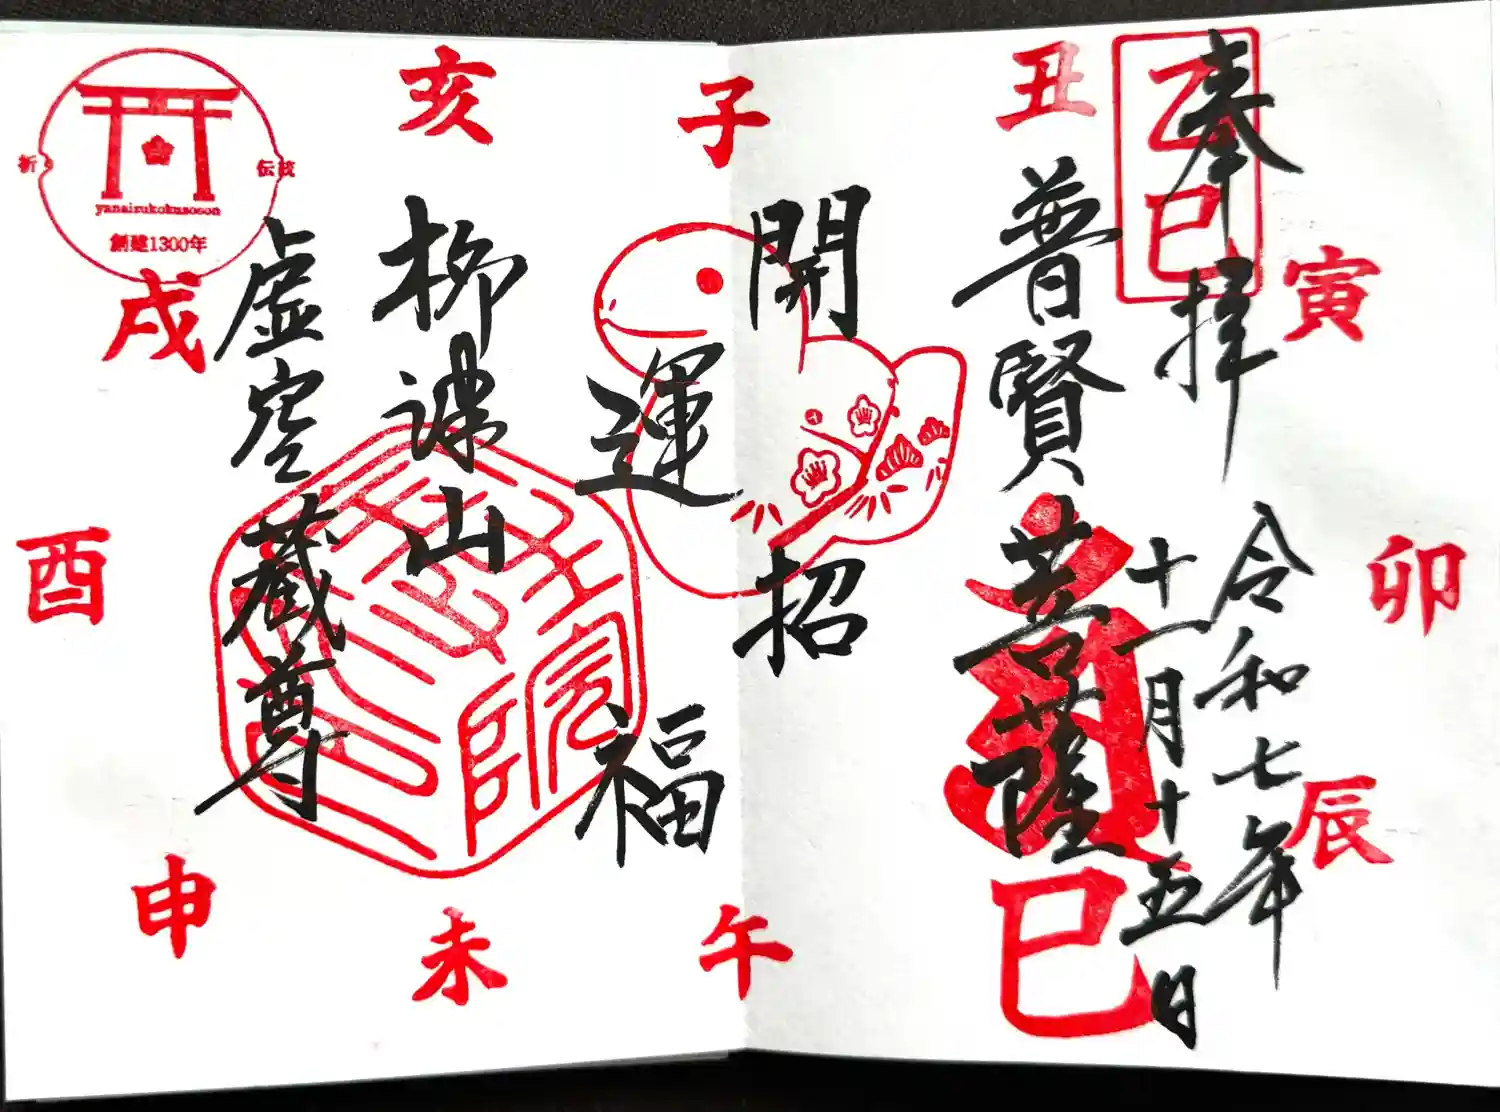 奉拝
令和七年
十一月十五日
普賢菩薩
開運招福
柳津山
虚空蔵尊
乙巳
子
丑
寅
卯
辰
巳
午
未
申
酉
戌
亥
祈
伝統
yanaizukokusoson
創建1300年